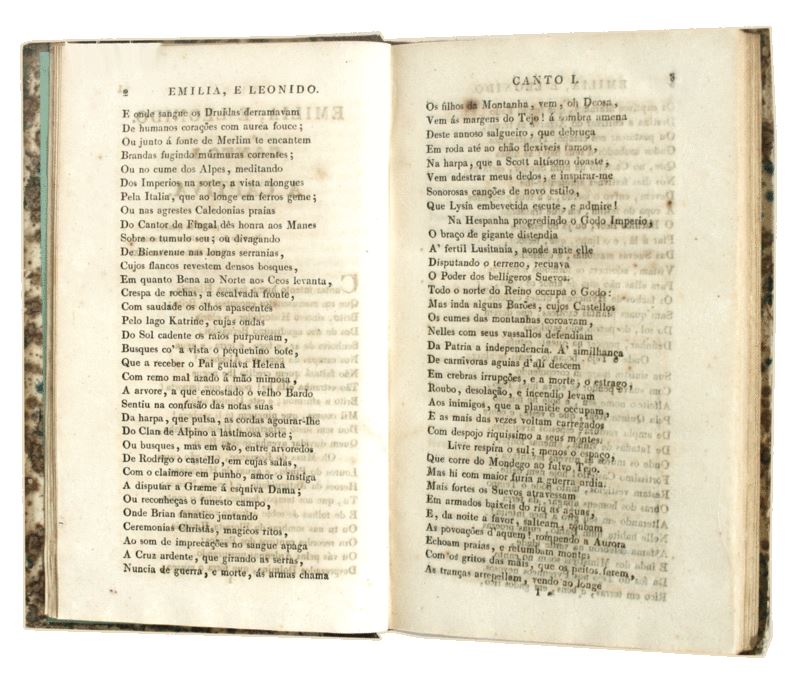 2 EMILIA, E LEONIDO.
E onde sangue os Druidas derramavam
De humanos corações com aurea fouce;
Ou junto á fonte de Merlim te encantem
Brandas fugindo murmuras correntes;
Ou no cume dos Alpes, meditando
Dos Imperios na sorte, a vista alongues
Pela Italia, que ao longe em ferros geme;
Ou nas agrestes Caledonias praias
Do Cantor de Fingal dês honra aos Manes
Sobre o tumulo seu; ou divagando
De Bienvenue nas longas serranias,
Cujos flancos revestem densos bosques,
Em quanto Bena ao Norte aos Ceos levanta,
Crespa de rochas, a escalvada fronte,
Com saudade os olhos apascentes
Pelo lago Katrine, cujas ondas
Do Sol cadente os raios purpuream,
Busques co' a vista o pequenino bote,
Que a receber o Pai guiava Helena
Com remo mal azado á mão mimosa,
A arvore, a que encostado o velho Bardo
Sentiu na confusão das notas suas
Da harpa, que pulsa, as cordas agourar-lhe
Do Clan de Alpino a lastimosa sorte;
Ou busques, mas em vão, entre arvoredos
De Rodrigo o castello, em cujas salas,
Com o claimore em punho, amor o instiga
A disputar a Græme a esquiva Dama;
Ou reconheças o funesto campo,
Onde Brian fanatico juntando
Ceremonias Christãs, magicos ritos,
Ao som de imprecações no sangue apaga
A Cruz ardente, que girando as serras,
Nuncia de guerra, e morte, ás armas chama
CANTO I. 3
Os filhos da Montanha, vem, oh Deosa,
Vem ás margens do Tejo! á sombra amena
Deste annoso salgueiro, que debruça
Em roda até ao chão flexiveis ramos,
Na harpa, que a Scott altisono doaste,
Vem adestrar meus dedos, e inspirar-me
Sonorosas canções de novo estilo,
Que Lysia embevecida escute, e admire!
Na Hespanha progredindo o Godo Imperio,
O braço de gigante distendia
A' fertil Lusitania, aonde ante elle
Disputando o terreno, recuava
O Poder dos belligeros Suevos.
Todo o norte do Reino occupa o Godo:
Mas inda alguns Barões, cujos Castellos
Os cumes das montanhas coroavam,
Nelles com seus vassallos defendiam
Da Patria a independencia. A' similhança
De carnivoras aguias d'alí descem
Em crebras irrupções, e a morte, o estrago,
Roubo, desolação, e incendio levam
Aos inimigos, que a planicie occupam,
E as mais das vezes voltam carregados
Com despojo riquissimo a seus montes.
Livre respira o sul; menos o espaço,
Que corre do Mondego ao fulvo Tejo.
Mas hi com maior furia a guerra ardia.
Mais fortes os Suevos atravessam
Em armados baixeis do rio as aguas,
E, da noite a favor, salteam, roubam
As povoações d'aquem! rompendo a Aurora
Echoam praias, e retumbam montes
Com os gritos das mãis, que os peitos ferem,
As tranças arrepellam, vendo ao longe
1 *